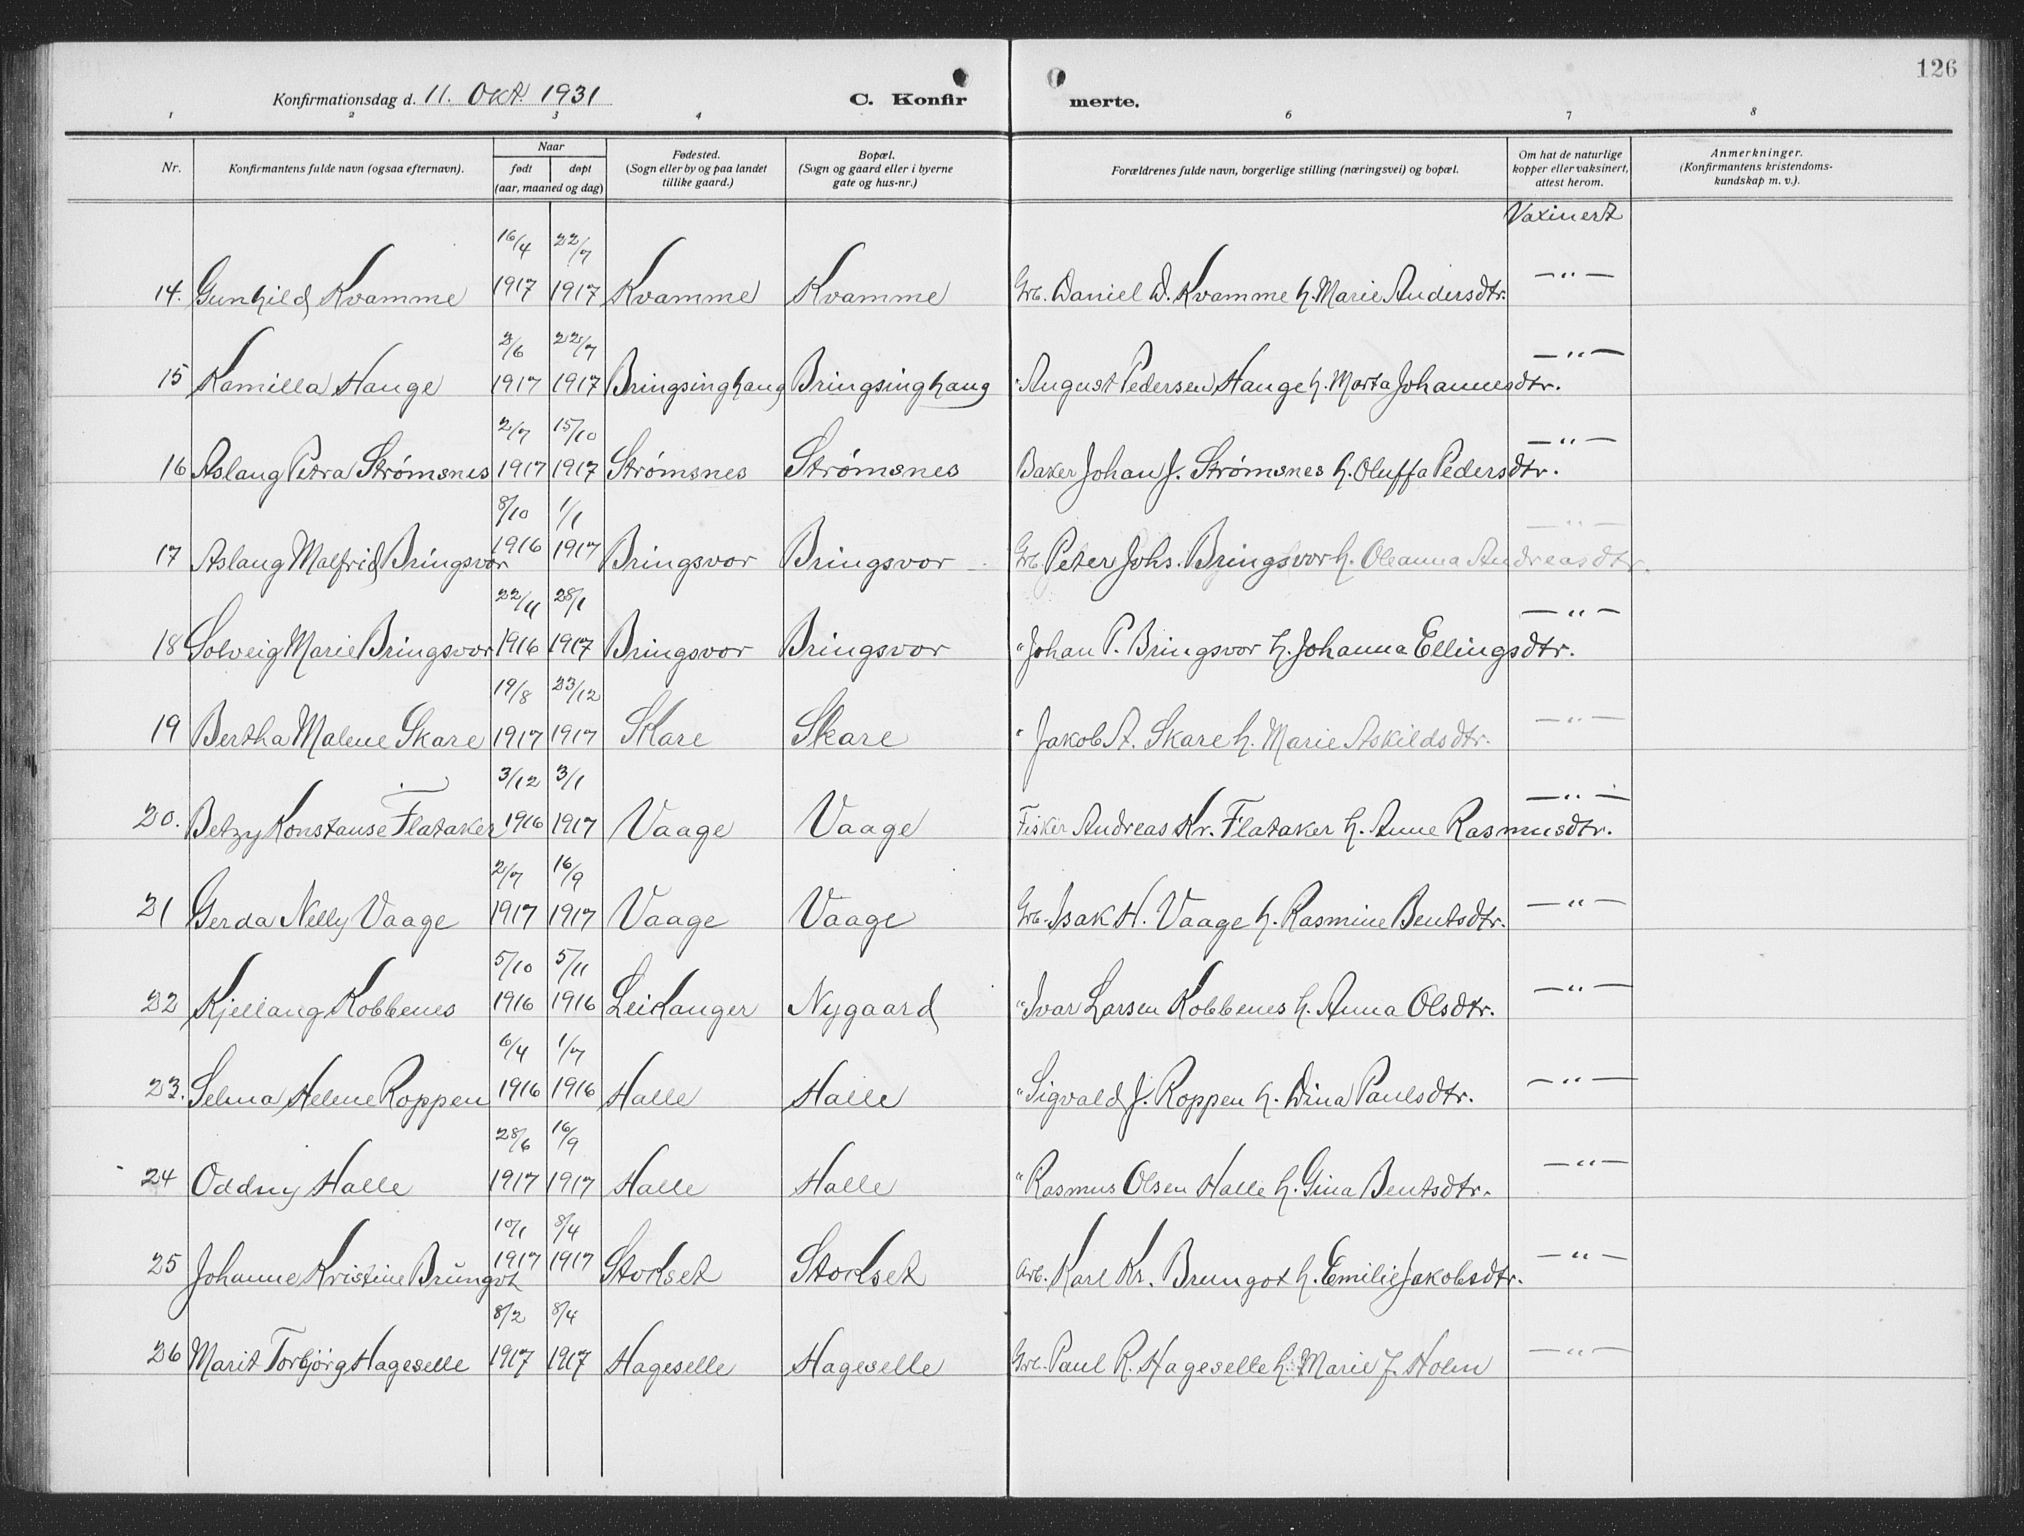 126
Konfirmationsdag d. 11. Okt. 1931 C. Konfirmerte.
1 2 3 4 6 7 8
Nr. Konfirmantens fulde navn (ogsaa efternavn). Naar født døpt (aar, maaned og dag) Fødested. (Sogn eller by og paa landet tillike gaard.) Bopæl. (Sogn og gaard eller i byerne gate og hus-nr.) Forældrenes fulde navn, borgerlige stilling (næringsvei) og bopæl. Om hat de naturlige kopper eller vaksinert, attest herom. Anmerkninger. (Konfirmantens kristendoms-kundskap m. v.).
Vaxinert
16/4 22/7
14. Gunhild Kvamme 1917 1917 Kvamme Kvamme Grb. Daniel D. Kvamme h. Marie Andersdtr. —"—
2/6 22/7
15 Kamilla Hauge 1917 1917 Bringsinghaug Bringsinghaug " August Pedersen Hauge h. Marta Johannesdtr. —"—
2/7 15/10
16 Aslaug Petra Strømsnes 1917 1917 Strømsnes Strømsnes Baker Johan J. Strømsnes h. Oluffa Pedersdtr. —"—
8/10 1/1
17 Aslaug Malfrid Bringsvor 1916 1917 Bringsvor Bringsvor Grb. Peter Johs. Bringsvor h. Oleanna Andreasdtr. —"—
22/11 28/1
18 Solveig Marie Bringsvor 1916 1917 Bringsvor Bringsvor " Johan P. Bringsvor h. Johanna Ellingsdtr. —"—
19/8 23/12
19 Bertha Malene Skare 1917 1917 Skare Skare " Jakob A. Skare h. Marie Askildsdtr. —"—
3/12 3/1
20. Betzy Konstanse Flataker 1916 1917 Vaage Vaage Fisker Andreas Kr. Flataker h. Anne Rasmusdtr. —"—
2/7 16/9
21 Gerda Nelly Vaage 1917 1917 Vaage Vaage Grb. Isak H. Vaage h. Rasmine Bentsdtr. —"—
5/10 5/11
22 Kjellaug Kobbenes 1916 1916 Leikanger Nygaard " Ivar Larsen Kobbenes h. Anna Olsdtr. —"—
6/4 1/7
23. Selma Helene Roppen 1916 1916 Halle Halle " Sigvald J. Roppen h. Dina Paulsdtr. —"—
28/6 16/9
24 Oddny Halle 1917 1917 Halle Halle " Rasmus Olsen Halle h. Gina Bentsdtr. —"—
10/1 8/4
25 Johanne Kristine Brungot 1917 1917 Storlset Storlset Arb. Karl Kr. Brungot h. Emilie Jakobsdtr. —"—
8/2 8/4
26 Marit Torbjørg Hageselle 1917 1917 Hageselle Hageselle Grb. Paul R. Hageselle h. Marie J. Holm —"—